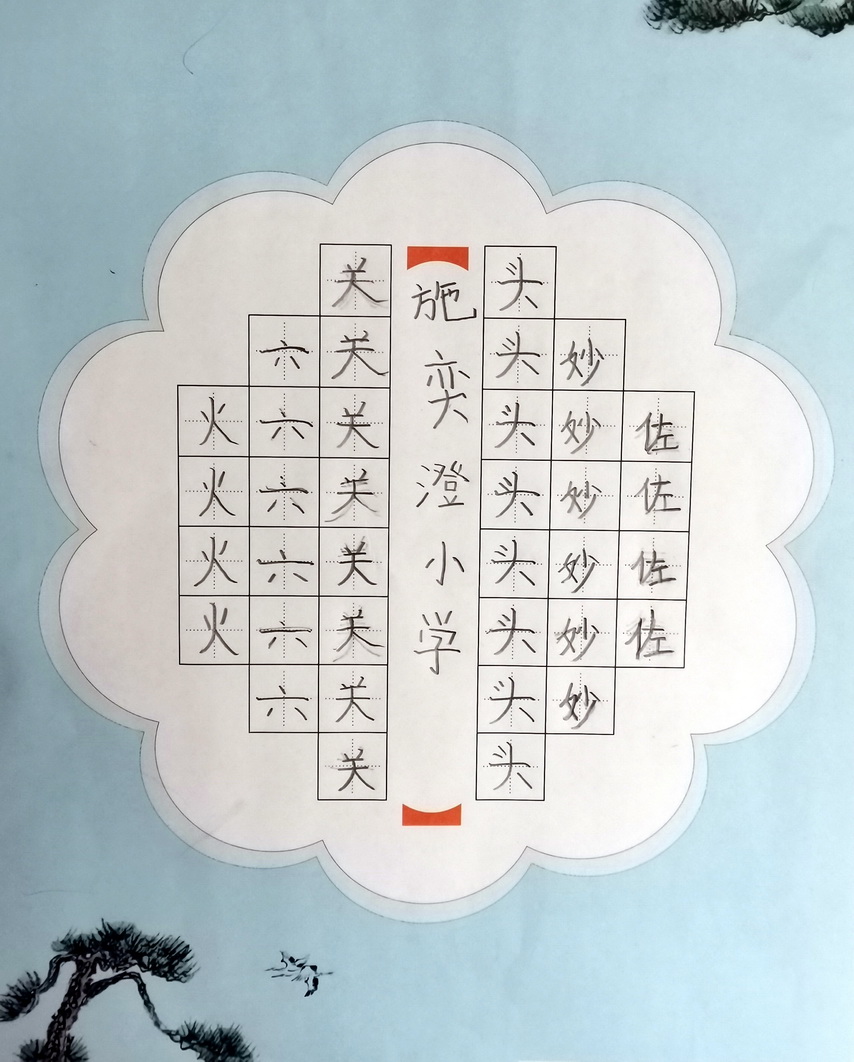 佐佐佐佐
妙妙妙妙妙妙
头头头头头头头头
施奕澄小学
关关关关关关关关
六六六六六六
火火火火